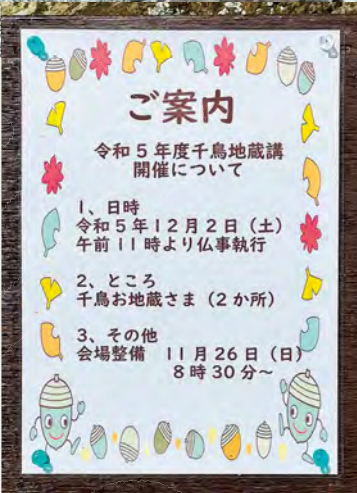 ご案内
令和5年度千鳥地蔵講
開催について
1、日時
令和5年12月2日(土)
午前11時より仏事執行
2、ところ
千鳥お地蔵さま(2か所)
3、その他
会場整備 11月26日(日)
8時30分~